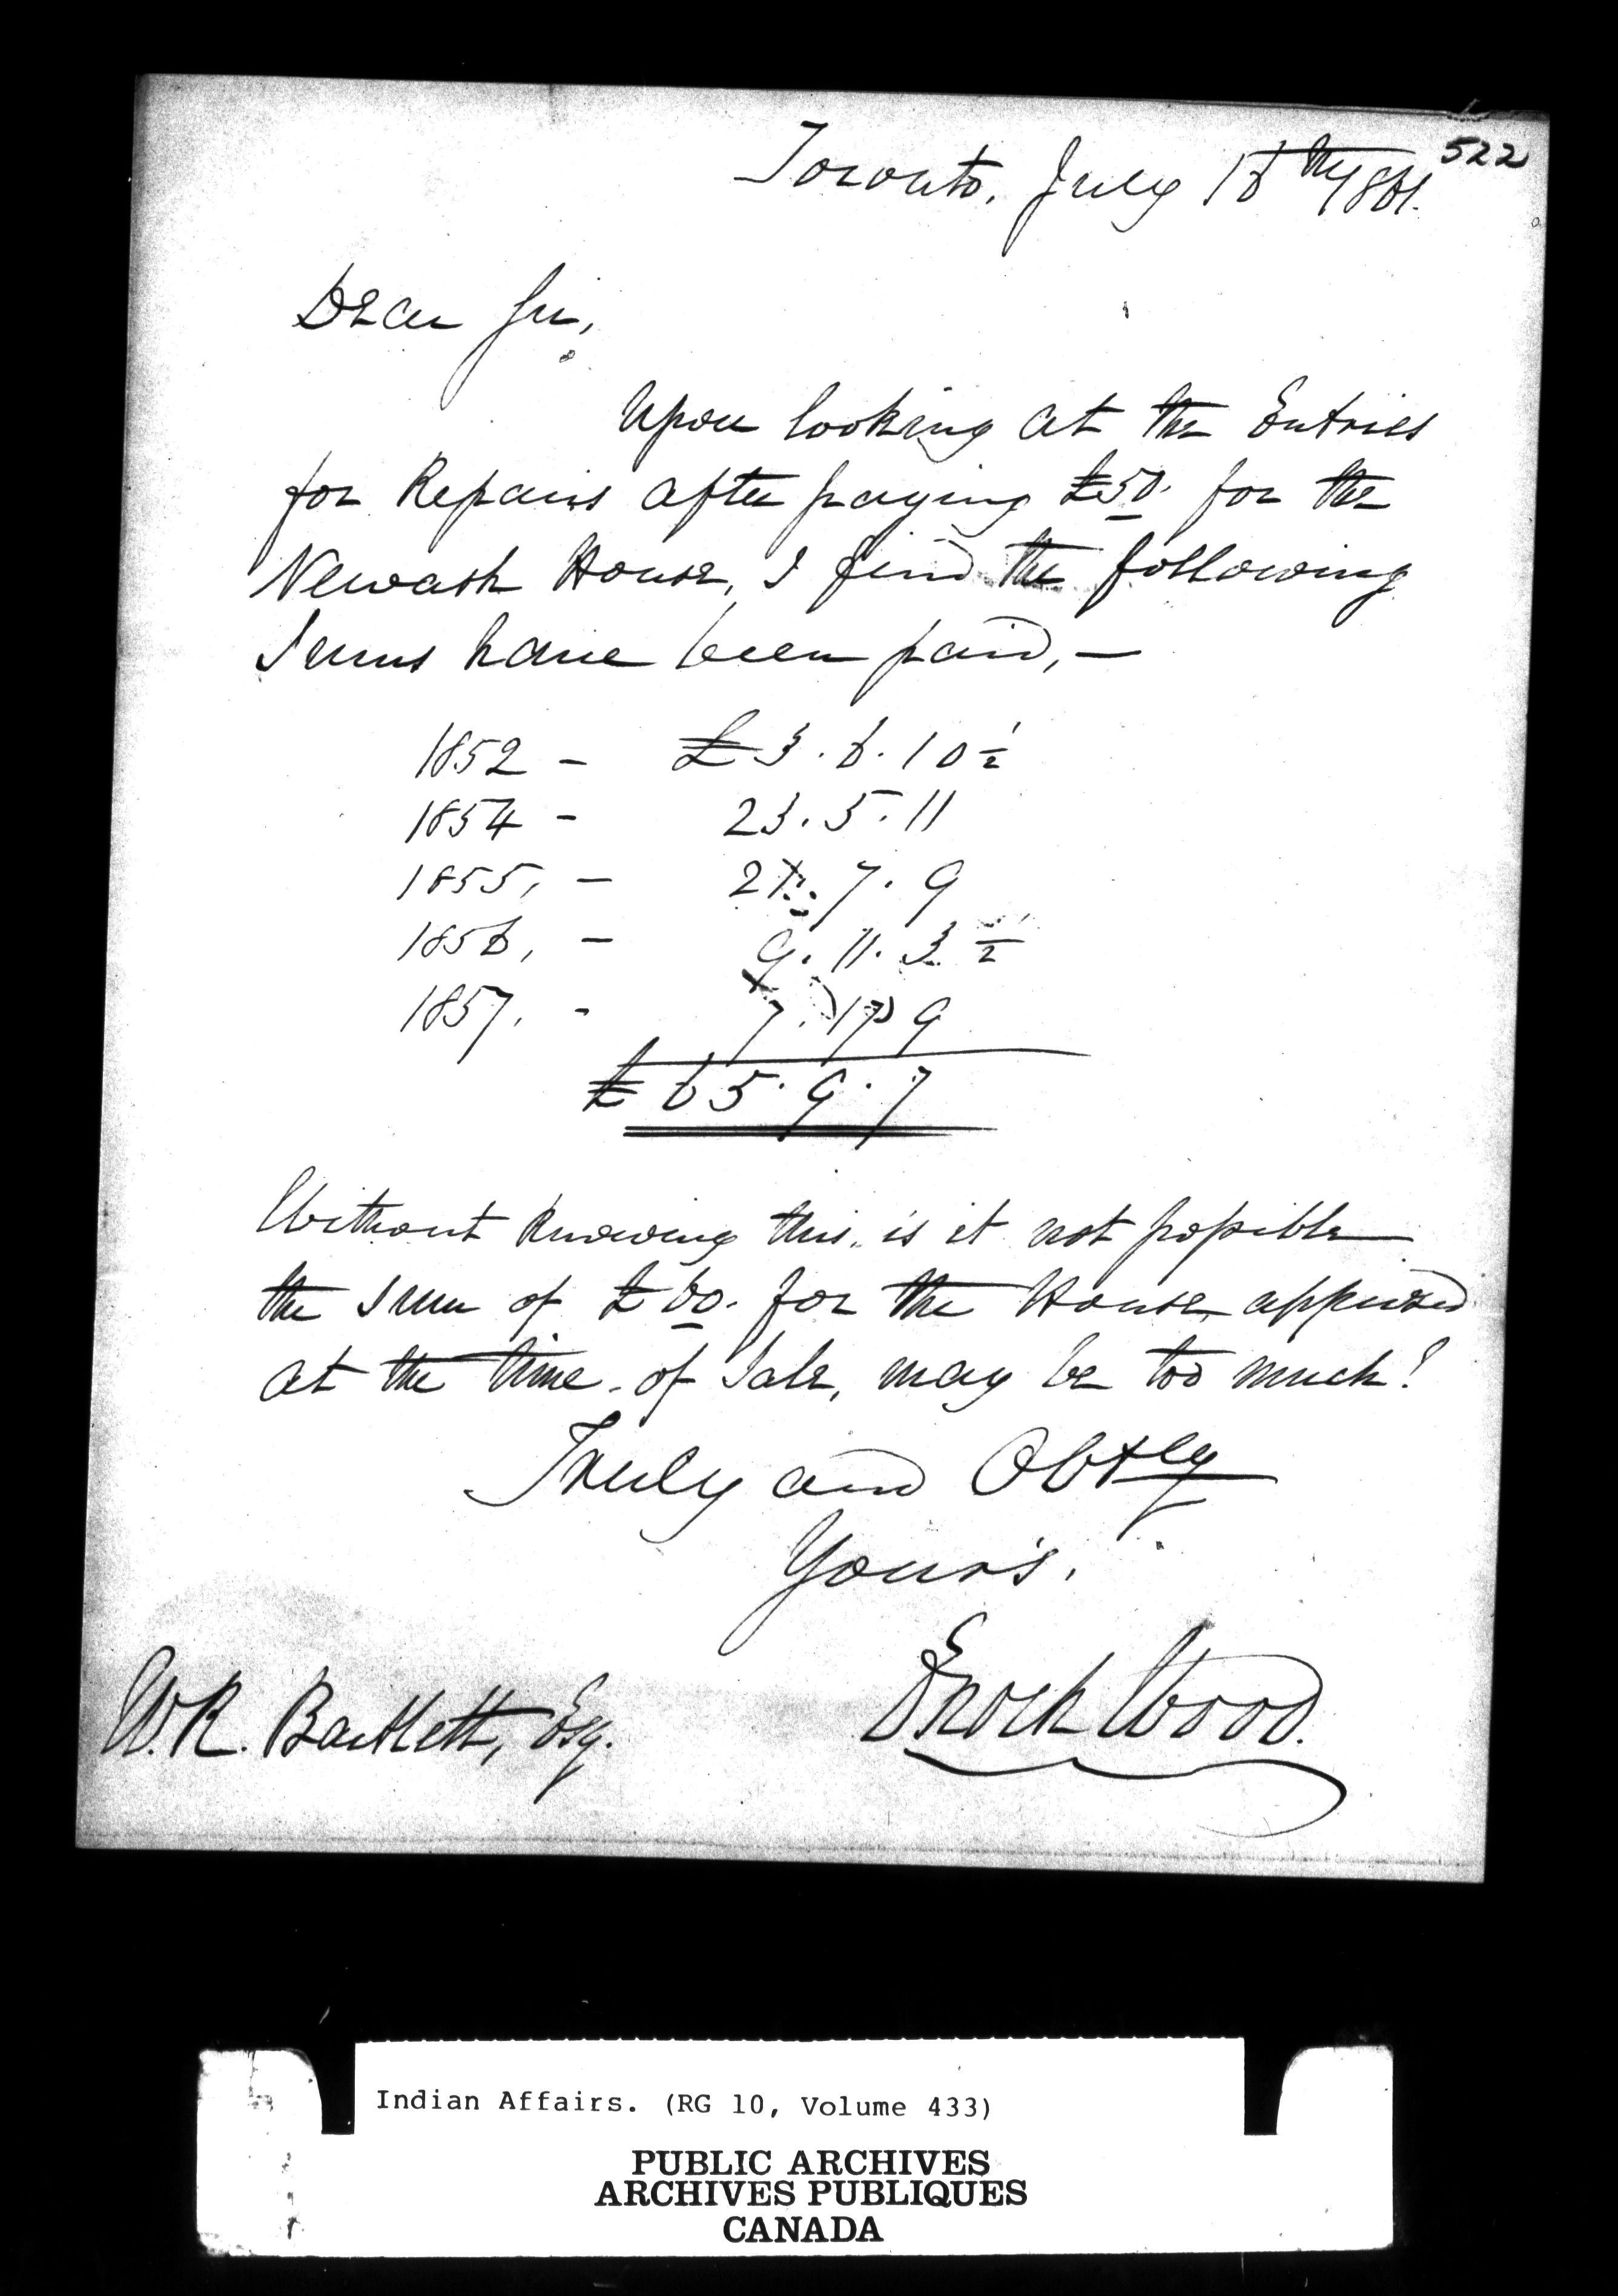 522
Toronto, July 16th 1861.
Dear Sir,
Upon looking at the Entries
for Repairs after paying £50. for the
Newash House, I find the following
Sums have been paid, —
1852 - £3.6.10½
1854 - 23.5.11
1855, - 21.7.9
1856, - 9.11.3½
1857. - 7.17.9
£65.9.7
Without knowing this, is it not possible
the sum of £60. for the House, apprised
at the time of Sale, may be too much?
Truly and Obtly
Your's,
Enoch Wood.
W.R. Bartlett, Esq.
Indian Affairs. (RG 10, Volume 433)
PUBLIC ARCHIVES
ARCHIVES PUBLIQUES
CANADA